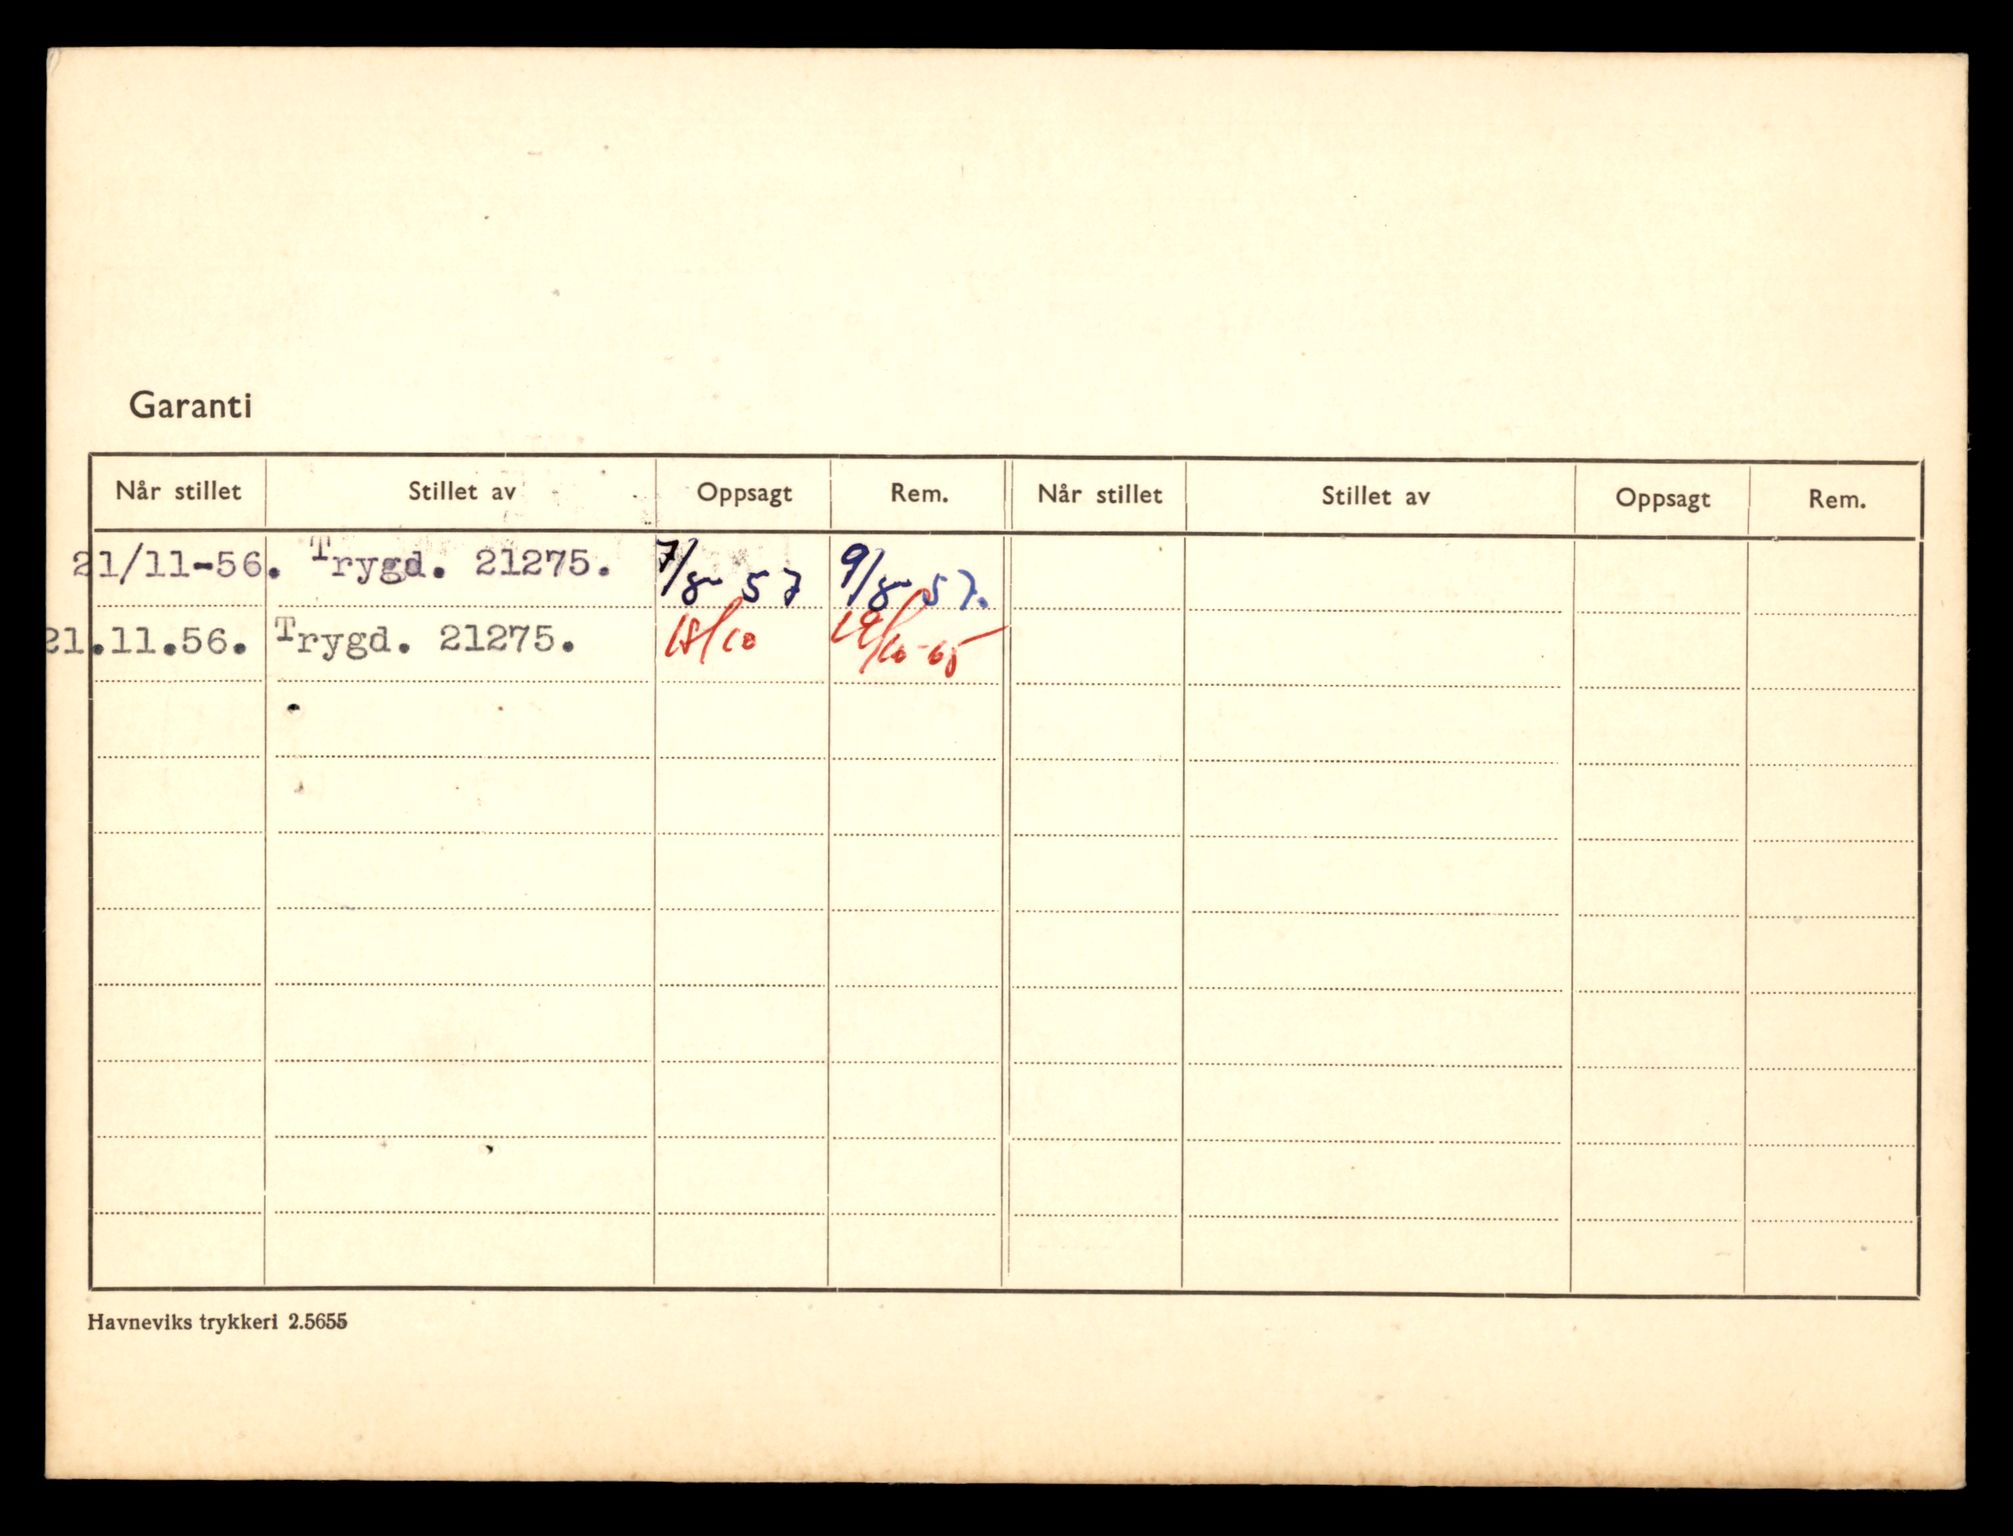 Garanti
Når stillet Stillet av Oppsagt Rem. Når stillet Stillet av Oppsagt Rem.
21/11-56. Trygd. 21275. 7/8 57 9/8 57.
21.11.56. Trygd. 21275. 18/10 19/10-65
Havneviks trykkeri 2.5655